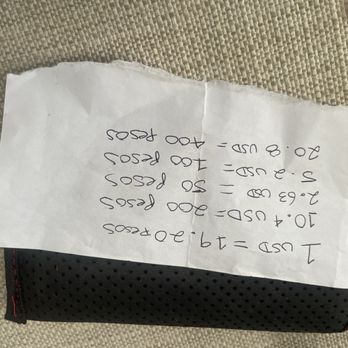 1 USD = 19.20 PESOS
10.4 USD = 200 PESOS
2.63 USD = 50 PESOS
5.2 USD = 100 PESOS
20.8 USD = 400 PESOS